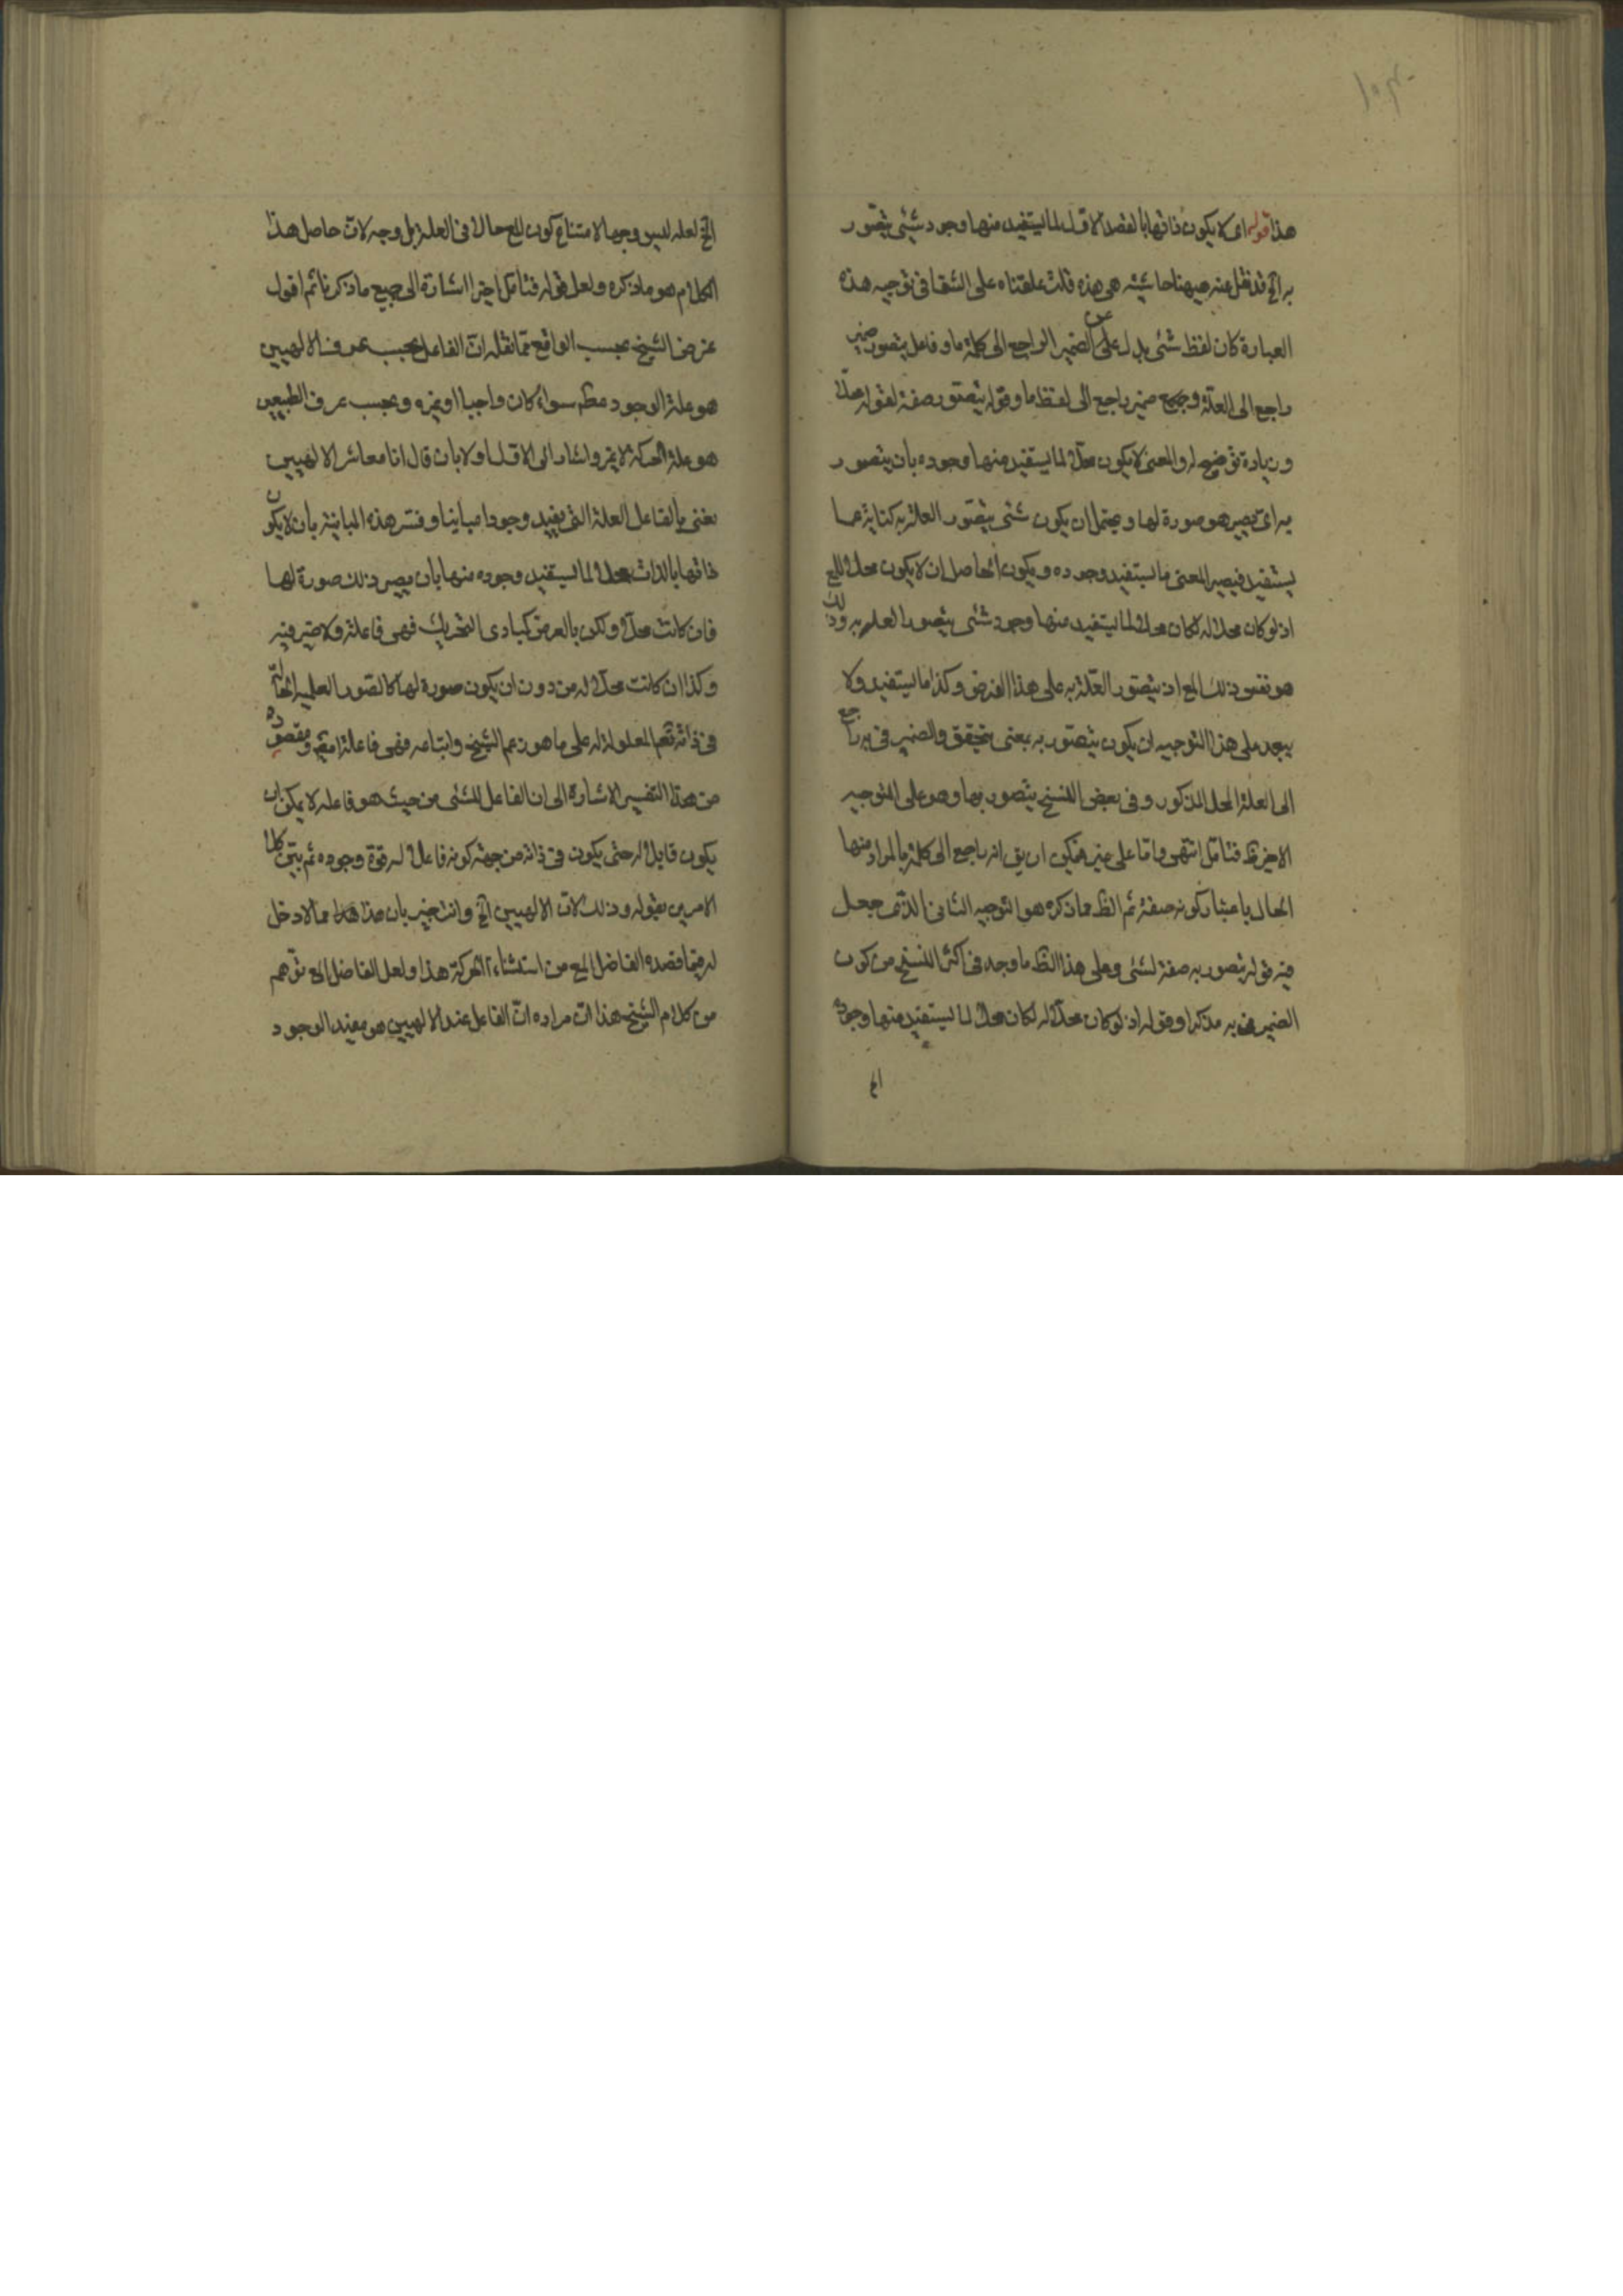 هذا قوله اى لا يكون ذاتها بالقصد الاول لما يستفيد منها وجود شيئى يتصور
به الخ قد نقل عنه ههنا حاشيته هى هذه قلت علقناه على الشفا فى توجيه هذه
العبارة كان لفظ شئى بدل عن الضمير الراجع الى كلمة ما وفاعل يتصور ضمير
راجع الى العلة وبه ضمير راجع الى لفظ ما وقوله يتصور صفة لقوله محلا
وزيادة توضيح له والمعنى لا يكون محلا لما يستفيد منها وجوده بان يتصور
به اى يصير هو صورة لها ويحتمل ان يكون شئى يتصور العلة به كناية عما
يستفيد فيصير المعنى ما يستفيد وجوده ويكون الحاصل ان لا يكون محلا للمع
اذ لو كان محلا له لكان محلا لما يستفيد منها وجود شئى يتصور العلة به وذلك
هو نفس ذلك المع اذ يتصور العلة به على هذا الفرض وكذا ما يستفيد ولا
يبعد على هذا التوجيه ان يكون يتصور به بمعنى يتحقق والضمير فى به راجع
الى العلة المحل المذكور وفى بعض النسخ يتصور بها وهو على التوجيه
الاخير ظ فتامل انتهى واما على غيره فيمكن ان يق انه راجع الى كلمة ما المراد منها
الحال باعتبار كونه صفة ثم الظ مما ذكره هو التوجيه الثانى الذى جعل
فيه قوله يتصور به صفة لشئى وعلى هذا الظ ما وجد فى اكثر النسخ من كون
الضمير فى به مذكرا وقوله اذ لو كان محلا له لكان محلا لما يستفيد منها وجوده
الخ
الخ لعله ليس وجها لامتناع كون المع حالا فى العلة بل وجه لان حاصل هذا
الكلام هو ما ذكره ولعل قوله فتامل اخيرا اشارة الى جميع ما ذكرنا ثم اقول
غرض الشيخ بحسب الواقع مما نقله ان الفاعل بحسب عرف الالهيين
هو علة الوجود مطم سواء كان واجبا او غيره وبحسب عرف الطبيعيين
هو علة الحركة لا غير واشار الى الاول اولا بان قال انا معاشر الالهيين
نعنى بالفاعل العلة التى يفيد وجودا مباينا وفسر هذه المباينة بان لا يكون
ذاتها بالذات محلا لما يستفيد وجوده منها بان يصير ذلك صورة لها
فان كانت محلا ولكن بالعرض كمبادى التحريك فهى فاعلة ولا ضير فيه
وكذا ان كانت محلا له من دون ان يكون صورة لها كالصور العلمية القائمة
فى ذاته تعم المعلولة له على ما هو زعم الشيخ واتباعه فهى فاعلة ايضا ومقصوده
من هذا التفسير الاشارة الى ان الفاعل للشئى من حيث هو فاعله لا يمكن ان
يكون قابلا له حتى يكون فى ذاته من جهة كونه فاعلا له قوة وجوده ثم بين كلا
الامرين بقوله وذلك لان الالهيين الخ وانت خبير بان هذا مما لا دخل
له فيما قصده الفاضل المع من استثناء الحركة هذا ولعل الفاضل المع توهم
من كلام الشيخ هذا ان مراده ان الفاعل عند الالهيين هو مفيد الوجود